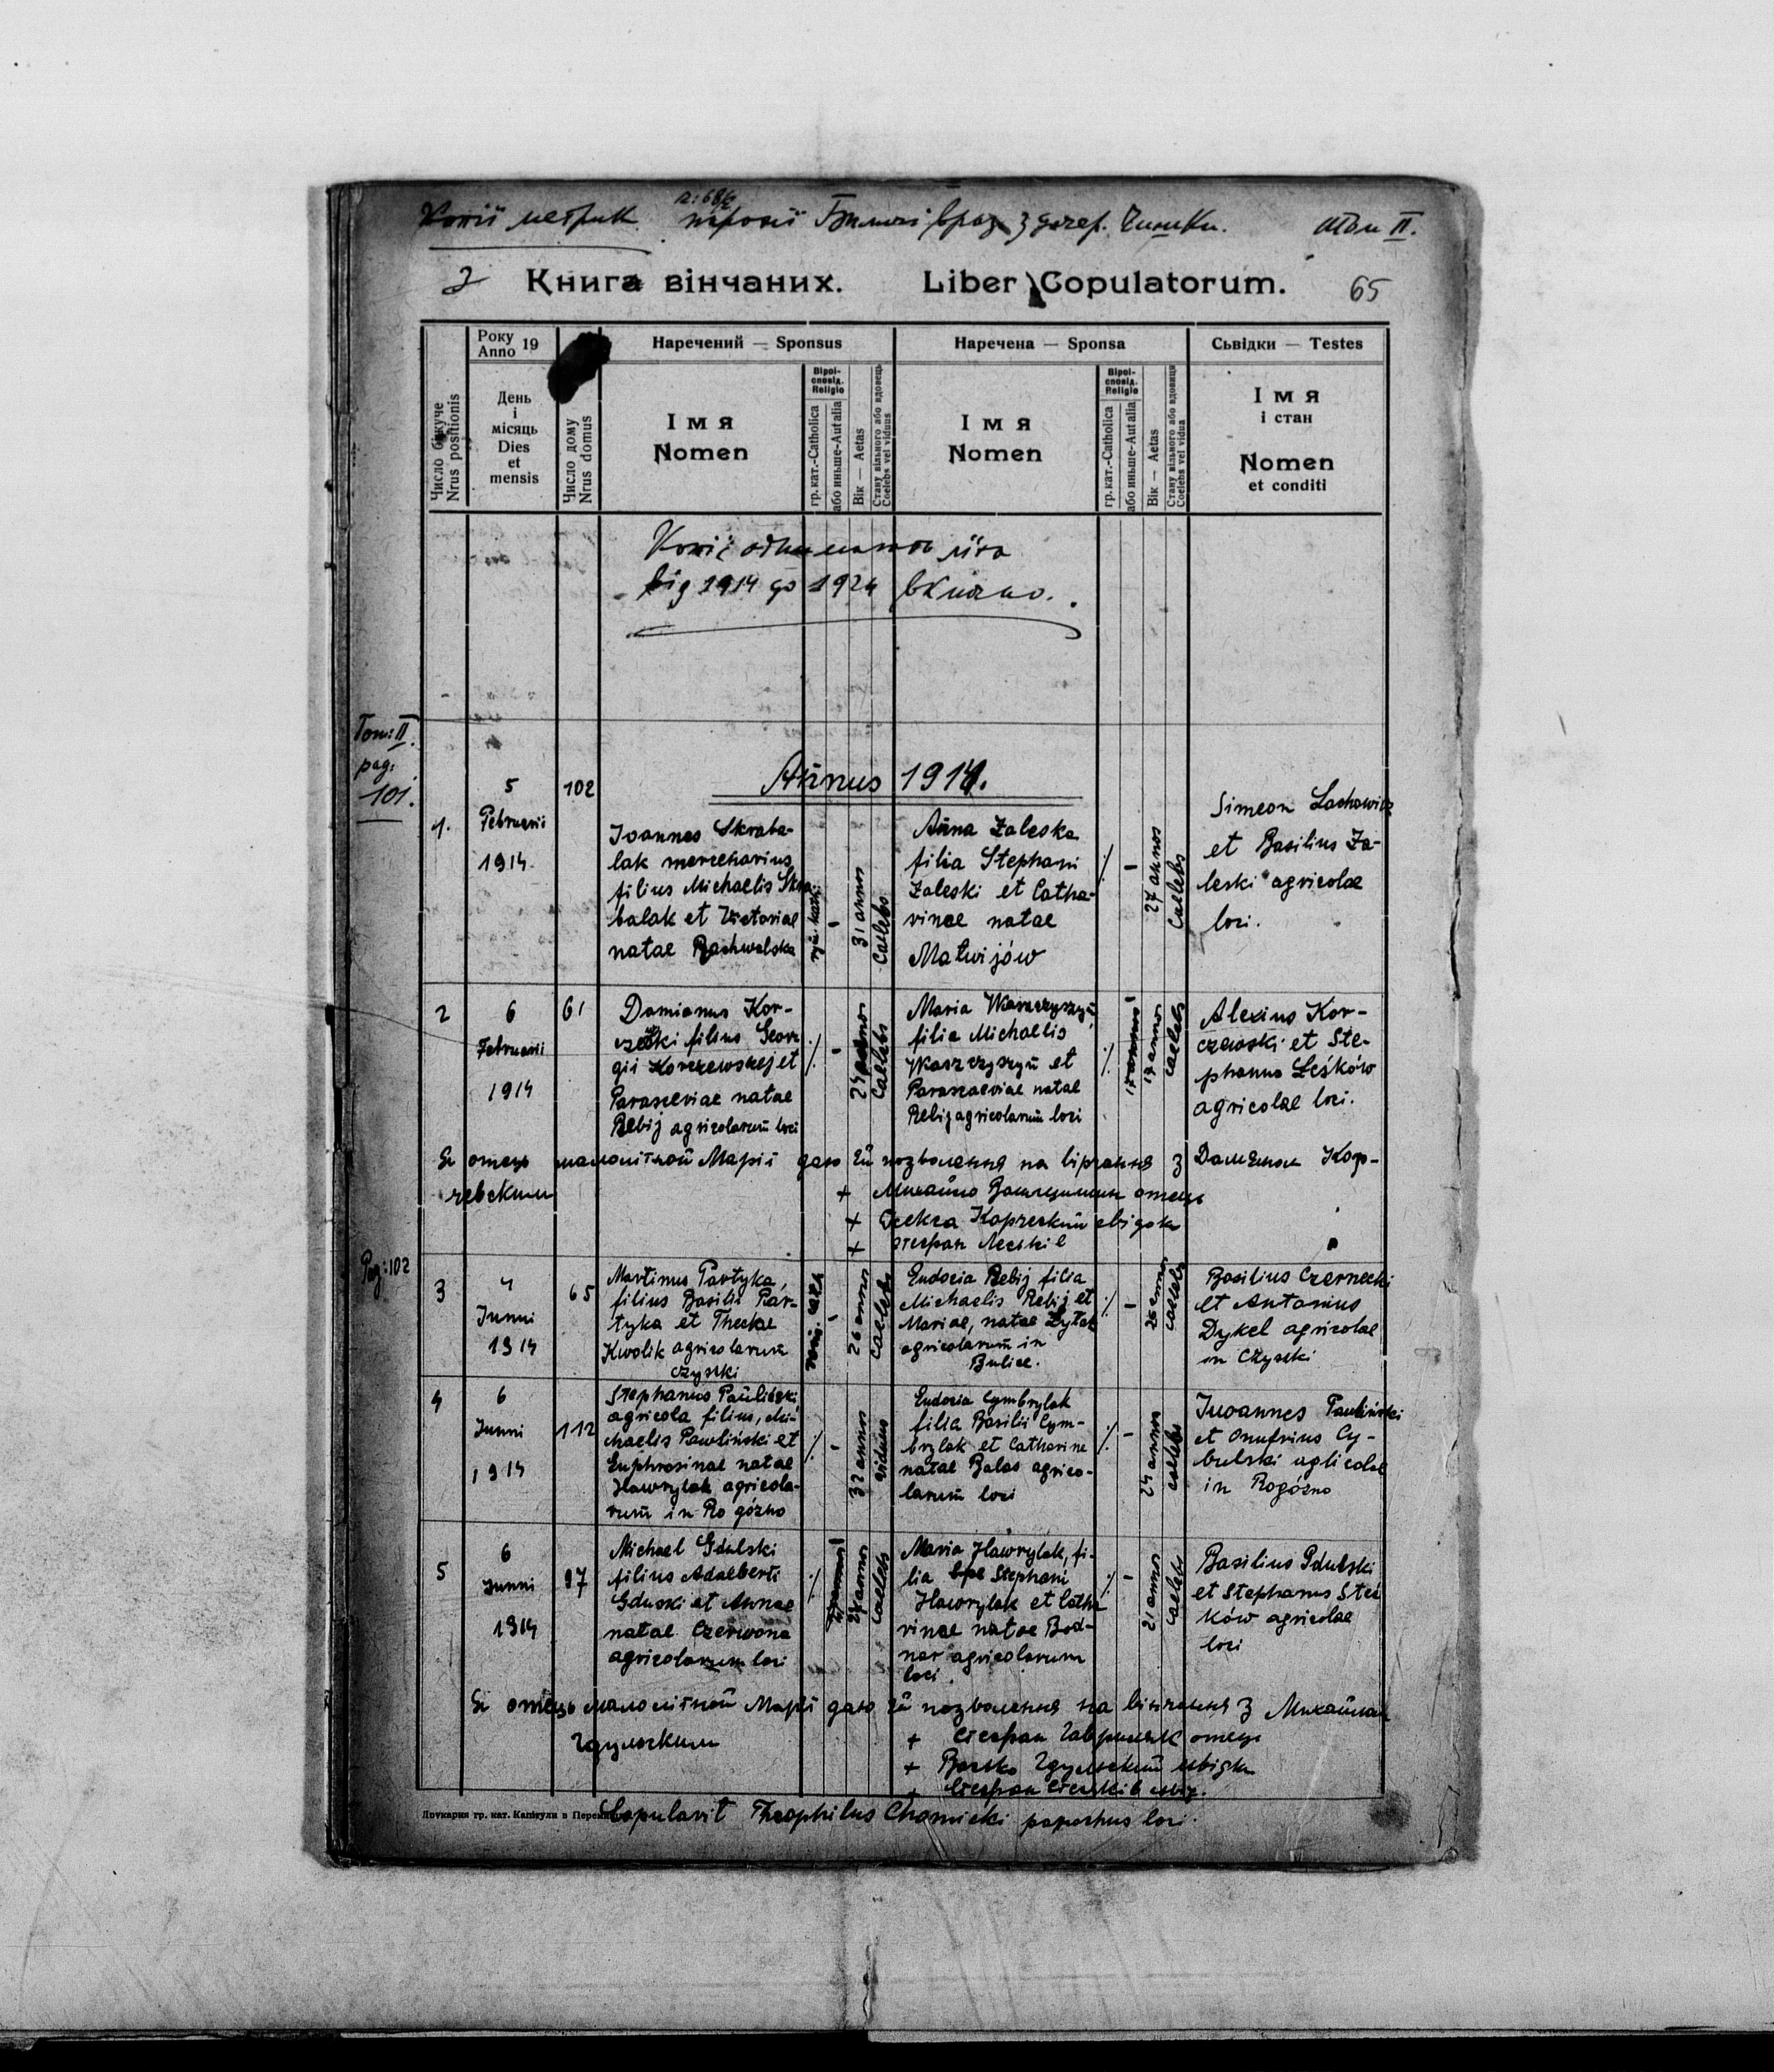 Копії метрик парохії з дочер. Чишки. том II.
2 Книга вінчаних. Liber Copulatorum. 65
Число бѣжуче Nrus positionis
Року Anno 19
День і місяць Dies et mensis
Число дому Nrus domus
Наречений — Sponsus
Імя Nomen
Віроісповід. Religio
гр. кат.-Catholica
або иньше-Aut alia
Вік — Aetas
Стану вільного або вдовець Coelebs vel viduus
Наречена — Sponsa
Імя Nomen
Віроісповід. Religio
гр. кат.-Catholica
або иньше-Aut alia
Вік — Aetas
Стану вільного або вдовиця Coelebs vel vidua
Сьвідки — Testes
Імя і стан
Nomen et conditi
Копії
від 1914 до 1924 включно.
Tom: II.
pag.
101.
Annus 1914.
1. 5 Februarii 1914 102
Ioannes Skraba-
lak mercenarius
filius Michaelis Skra-
balak et Victoriae
natae Bachwalska
31 annos
Caelebs
Anna Zaleska
filia Stephani
Zaleski et Catha-
rinae natae
Matwijów
27 annos
Caelebs
Simeon Lachowicz
et Basilius Za-
leski agricolae
loci.
2 6 Februarii 1914 61
Damianus Kor-
czewski filius Geor-
gii Korczewskej et
Parasceviae natae
Rebij agricolarum loci
24 annos
Caelebs
Maria Waszczyszyn
filia Michaelis
Waszczyszyn et
Parasceviae natae
Rebij agricolarum loci
17 annos
17 annos
caelebs
Alexius Kor-
czewski et Ste-
phanus Leśków
agricolae loci.
Я отець малолітной Марії даю їй позволення на вінчання з Дамяном Кор-
чевским
+ Михайло Ващишин отець
+ Олекса Корчевский свідок
+ Стефан Леськів
Pag: 102
3 4 Junni 1914 65
Martinus Partyka,
filius Basilii Par-
tyka et Theclae
Kwolik agricolarum
czyszki
26 annos
caelebs
Eudocia Rebij filia
Michaelis Rebij et
Mariae, natae Żytek
agricolarum in
Bulice.
25 annos
caelebs
Basilius Czernecki
et Antonius
Dykel agricolae
in Czyszki
4 6 Junni 1914 112
Stephanus Pauliński
agricola filius, Mi-
chaelis Pawliński et
Euphrosinae natae
Hawrylak agricola-
rum in Rogózno
32 annos
viduus
Eudocia Cymbrylak
filia Basilii Cym-
brylak et Catharine
natae Balas agrico-
larum loci
24 annos
caelebs
Iwoannes Pauliński
et Onufrius Cy-
bulski aglicolae
in Rogózno
5 6 Junni 1914 97
Michael Gdulski
filius Adalberti
Gduski et Annae
natae Czerwona
agricolarum loci
27 annos
caelebs
Maria Hawrylak, fi-
lia Stephani
Hawrylak et Catha
rinae natae Bod-
nar agricolarum
loci.
21 annos
caelebs
Basilius Gdulski
et Stephanus Stec
ków agricolae
loci
Я отець малолітной Марії даю їй позволення на вінчання з Михайлом
Гдульским
+ Стефан Гавриляк отець
+ Васько Гдульский свідок
+ Стефан Стецьків свід.
Друкарня гр. кат. Капітули в Перемишлі.
Copulavit Theophilus Chomicki parochus loci.